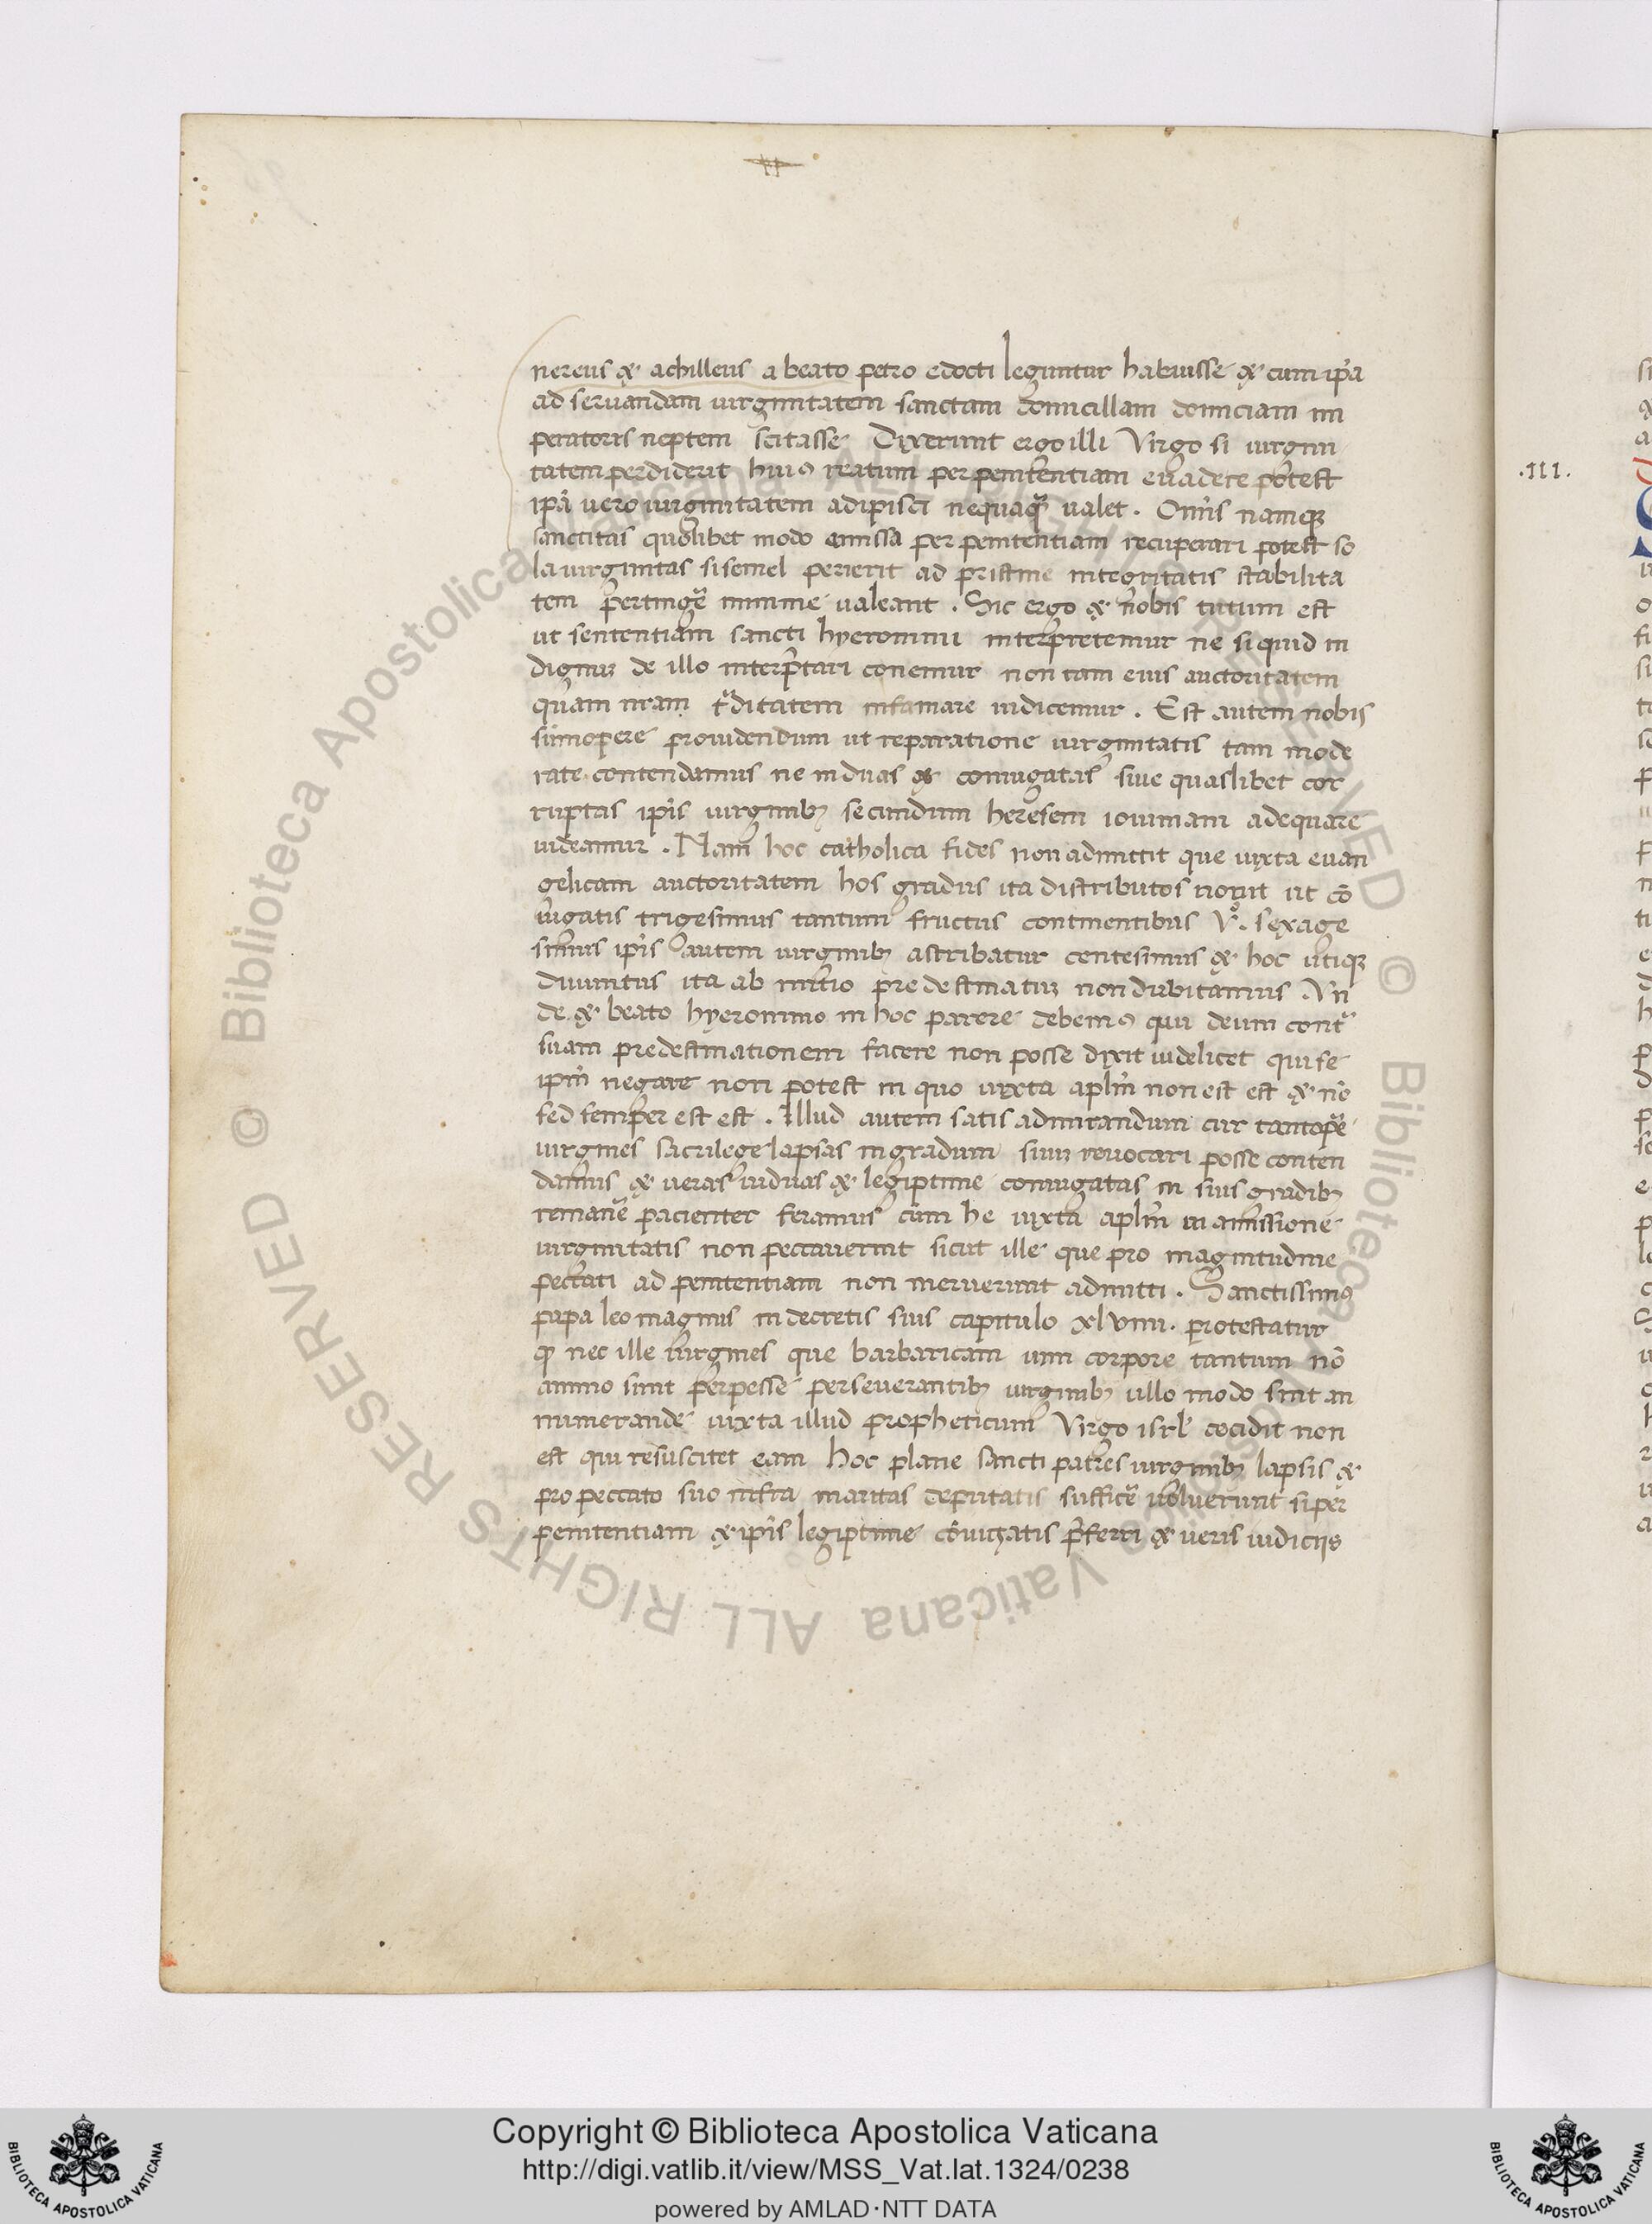 nereus & achilleus a beato petro edocti leguntur habuisse & cum ip̄a
ad seruandam uirginitatem sanctam domicillam domiciam im
peratoris neptem scitasse Dixerunt ergo illi Virgo si uirgini
tatem perdiderit huiꝰ reatum per penitentiam euadere potest
ip̄ā uero uirginitatem adipisci nequaq̄ ualet . Om̄is namq;
sanctitas quolibet modo amissa per penitentiam recuperari potest so
la uirginitas si semel perierit ad pristine integritatis stabilita
tem pertinḡe minime ualeant . Sic ergo & nobis tutum est
ut sententiam sancti hyeronimi interpretemur ne si quid in
dignuꝫ de illo interp̄tari conemur non tam eius auctoritatem
quam nr̄am t̄ditatem infamare iudicemur . Est autem nobis
sūmopere prouidendum ut reparatione uirginitatis tam mode
rate contendamus ne induas & coniugatas siue quaslibet cor
ruptas ip̄is uirginibꝫ secundum heresem iouiniani adequare
uideamur . Nam hoc catholica fides non admittit que iuxta euan
gelicam auctoritatem hos gradus ita distributos nouit ut cō
iugatis trigesimus tantum fructus continentibus V̊. sexage
simus ip̄is autem uirginibꝫ astribatur centesimus & hoc utiqꝫ
diuinitus ita ab initio predestinatuꝫ non dubitamus . Vn
de & beato hyeronimo in hoc parere debemꝰ qui deum cont̄
suam predestinationem facere non posse dixit uidelicet qui se
ip̄m negare non potest in quo iuxta apl̄m non est est & nō
sed semper est est . Illud autem satis admirandum cur tantop̄e
uirgines sacrilege lapsas in gradum suuꝫ reuocari posse conten
damus & ueras uiduas & legiptime coniugatas in suis gradibꝫ
remanē̄ pacienter feramus cum he iuxta apl̄m in amissione
uirginitatis non peccauerint sicut ille que pro magnitudine
peccati ad penitentiam non meruerunt admitti . Sanctissimꝰ
papa leo magnus in decretis suis capitulo xlviiii. protestatur
qꝫ nec ille uirgines que barbaricam uim corpore tantum nō
animo sunt perpesse perseuerantibꝫ uirginibꝫ ullo modo sint an
numerande iuxta illud propheticum Virgo isrl̄ cecidit non
est qui resuscitet eam hoc plane sancti patres uirginibꝫ lapsis &
pro peccato suo infra maritas deputatis sufficē̄ uoluerunt si per
penitentiam & ip̄is legiptime cōiugatis p̄ferri & ueris uidiciis
.III.
Copyright © Biblioteca Apostolica Vaticana
http://digi.vatlib.it/view/MSS_Vat.lat.1324/0238
powered by AMLAD·NTT DATA
BIBLIOTECA APOSTOLICA VATICANA
BIBLIOTECA APOSTOLICA VATICANA
© Biblioteca Apostolica Vaticana ALL RIGHTS RESERVED © Biblioteca Apostolica Vaticana ALL RIGHTS RESERVED